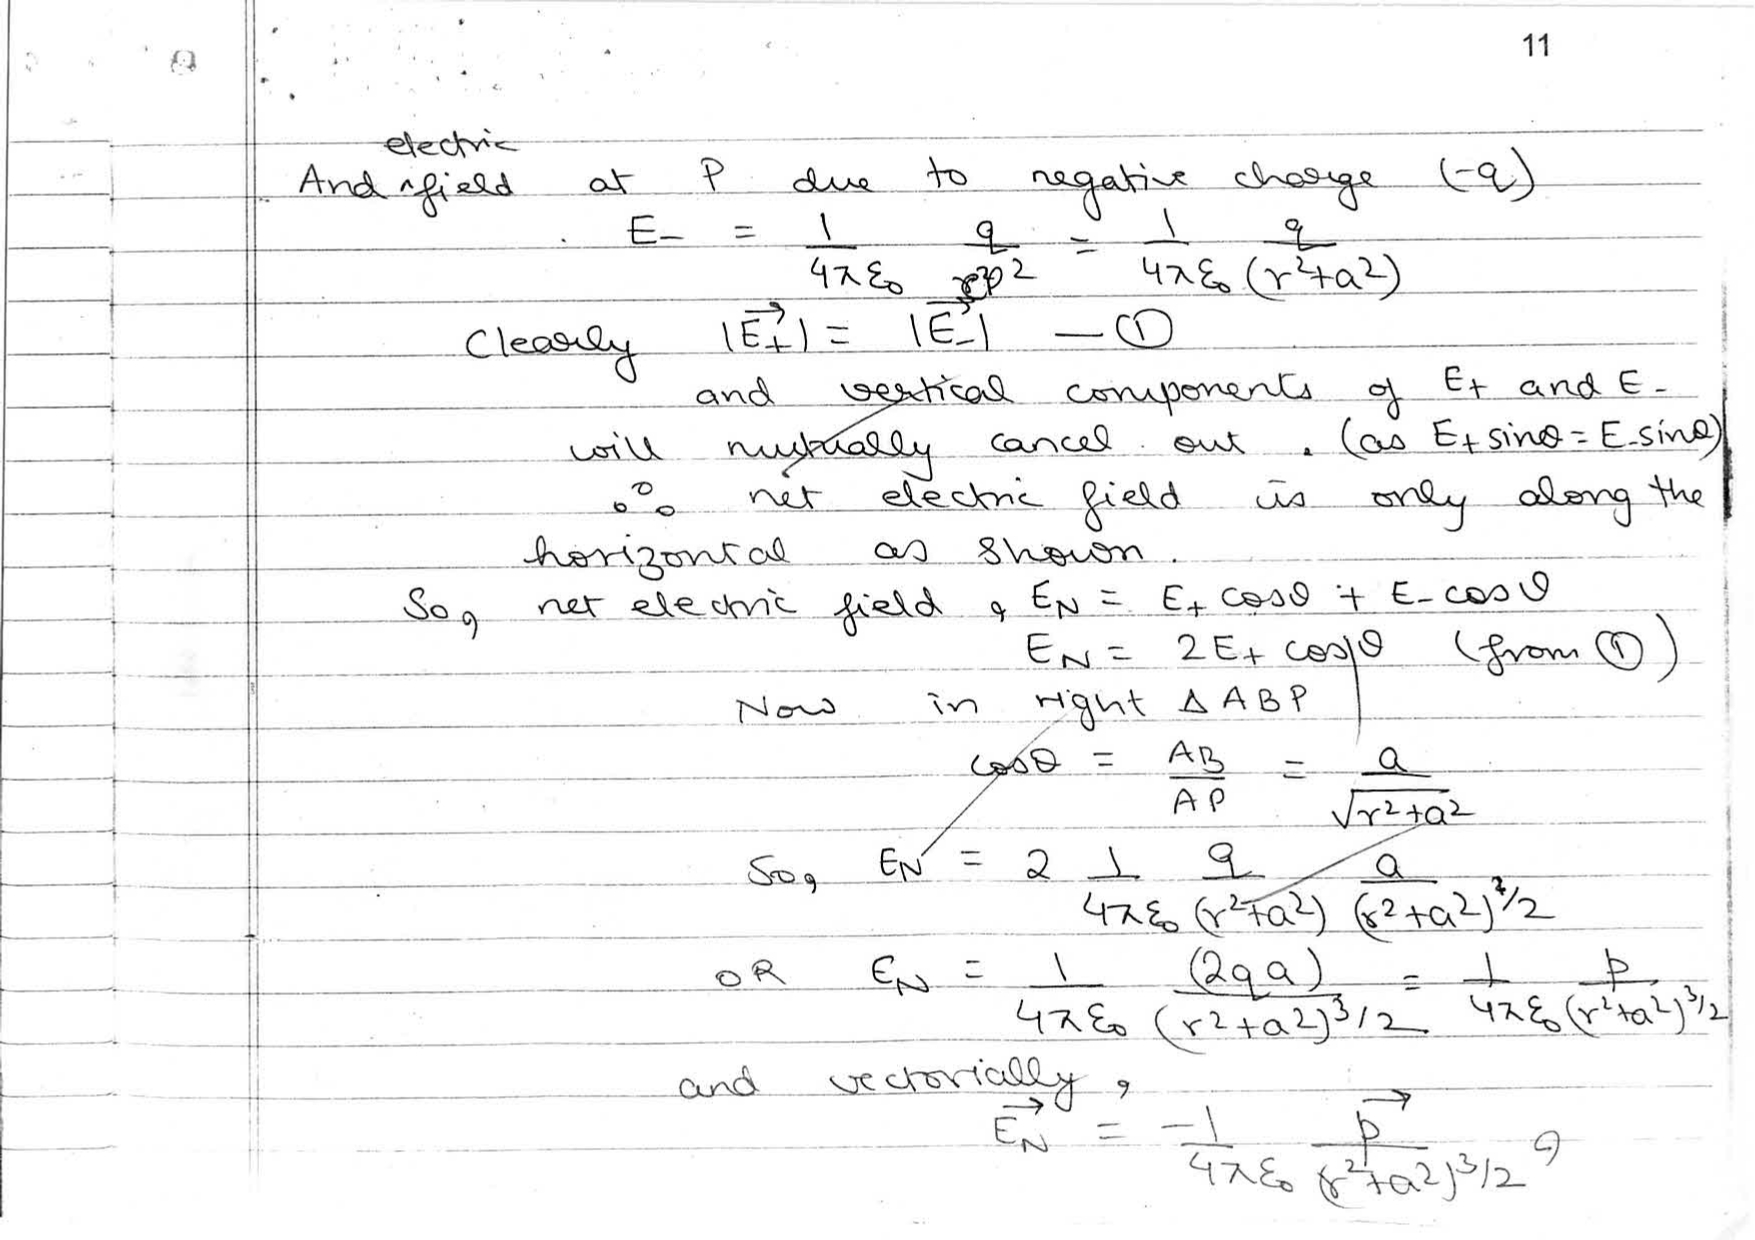 11
electric
And ^field at P due to negative charge (-q)
E₋ = 1/4πε₀ q/r²p² = 1/4πε₀ q/(r²+a²)
Clearly |E₊→| = |E₋→| — ①
and vertical components of E+ and E-
will mutually cancel out. (as E+ sinθ = E-sinθ)
∴ net electric field is only along the
horizontal as shown.
So, net electric field, E_N = E₊ cosθ + E₋ cosθ
E_N = 2E+ cosθ (from ①)
Now in right Δ ABP
cosθ = AB/AP = a/√r²+a²
So, E_N = 2 1/4πε₀ q/(r²+a²) a/(r²+a²)^1/2
OR E_N = 1/4πε₀ (2qa)/(r²+a²)^3/2 = 1/4πε₀ p/(r²+a²)^3/2
and vectorially,
E_N→ = -1/4πε₀ p→/(r²+a²)^3/2,